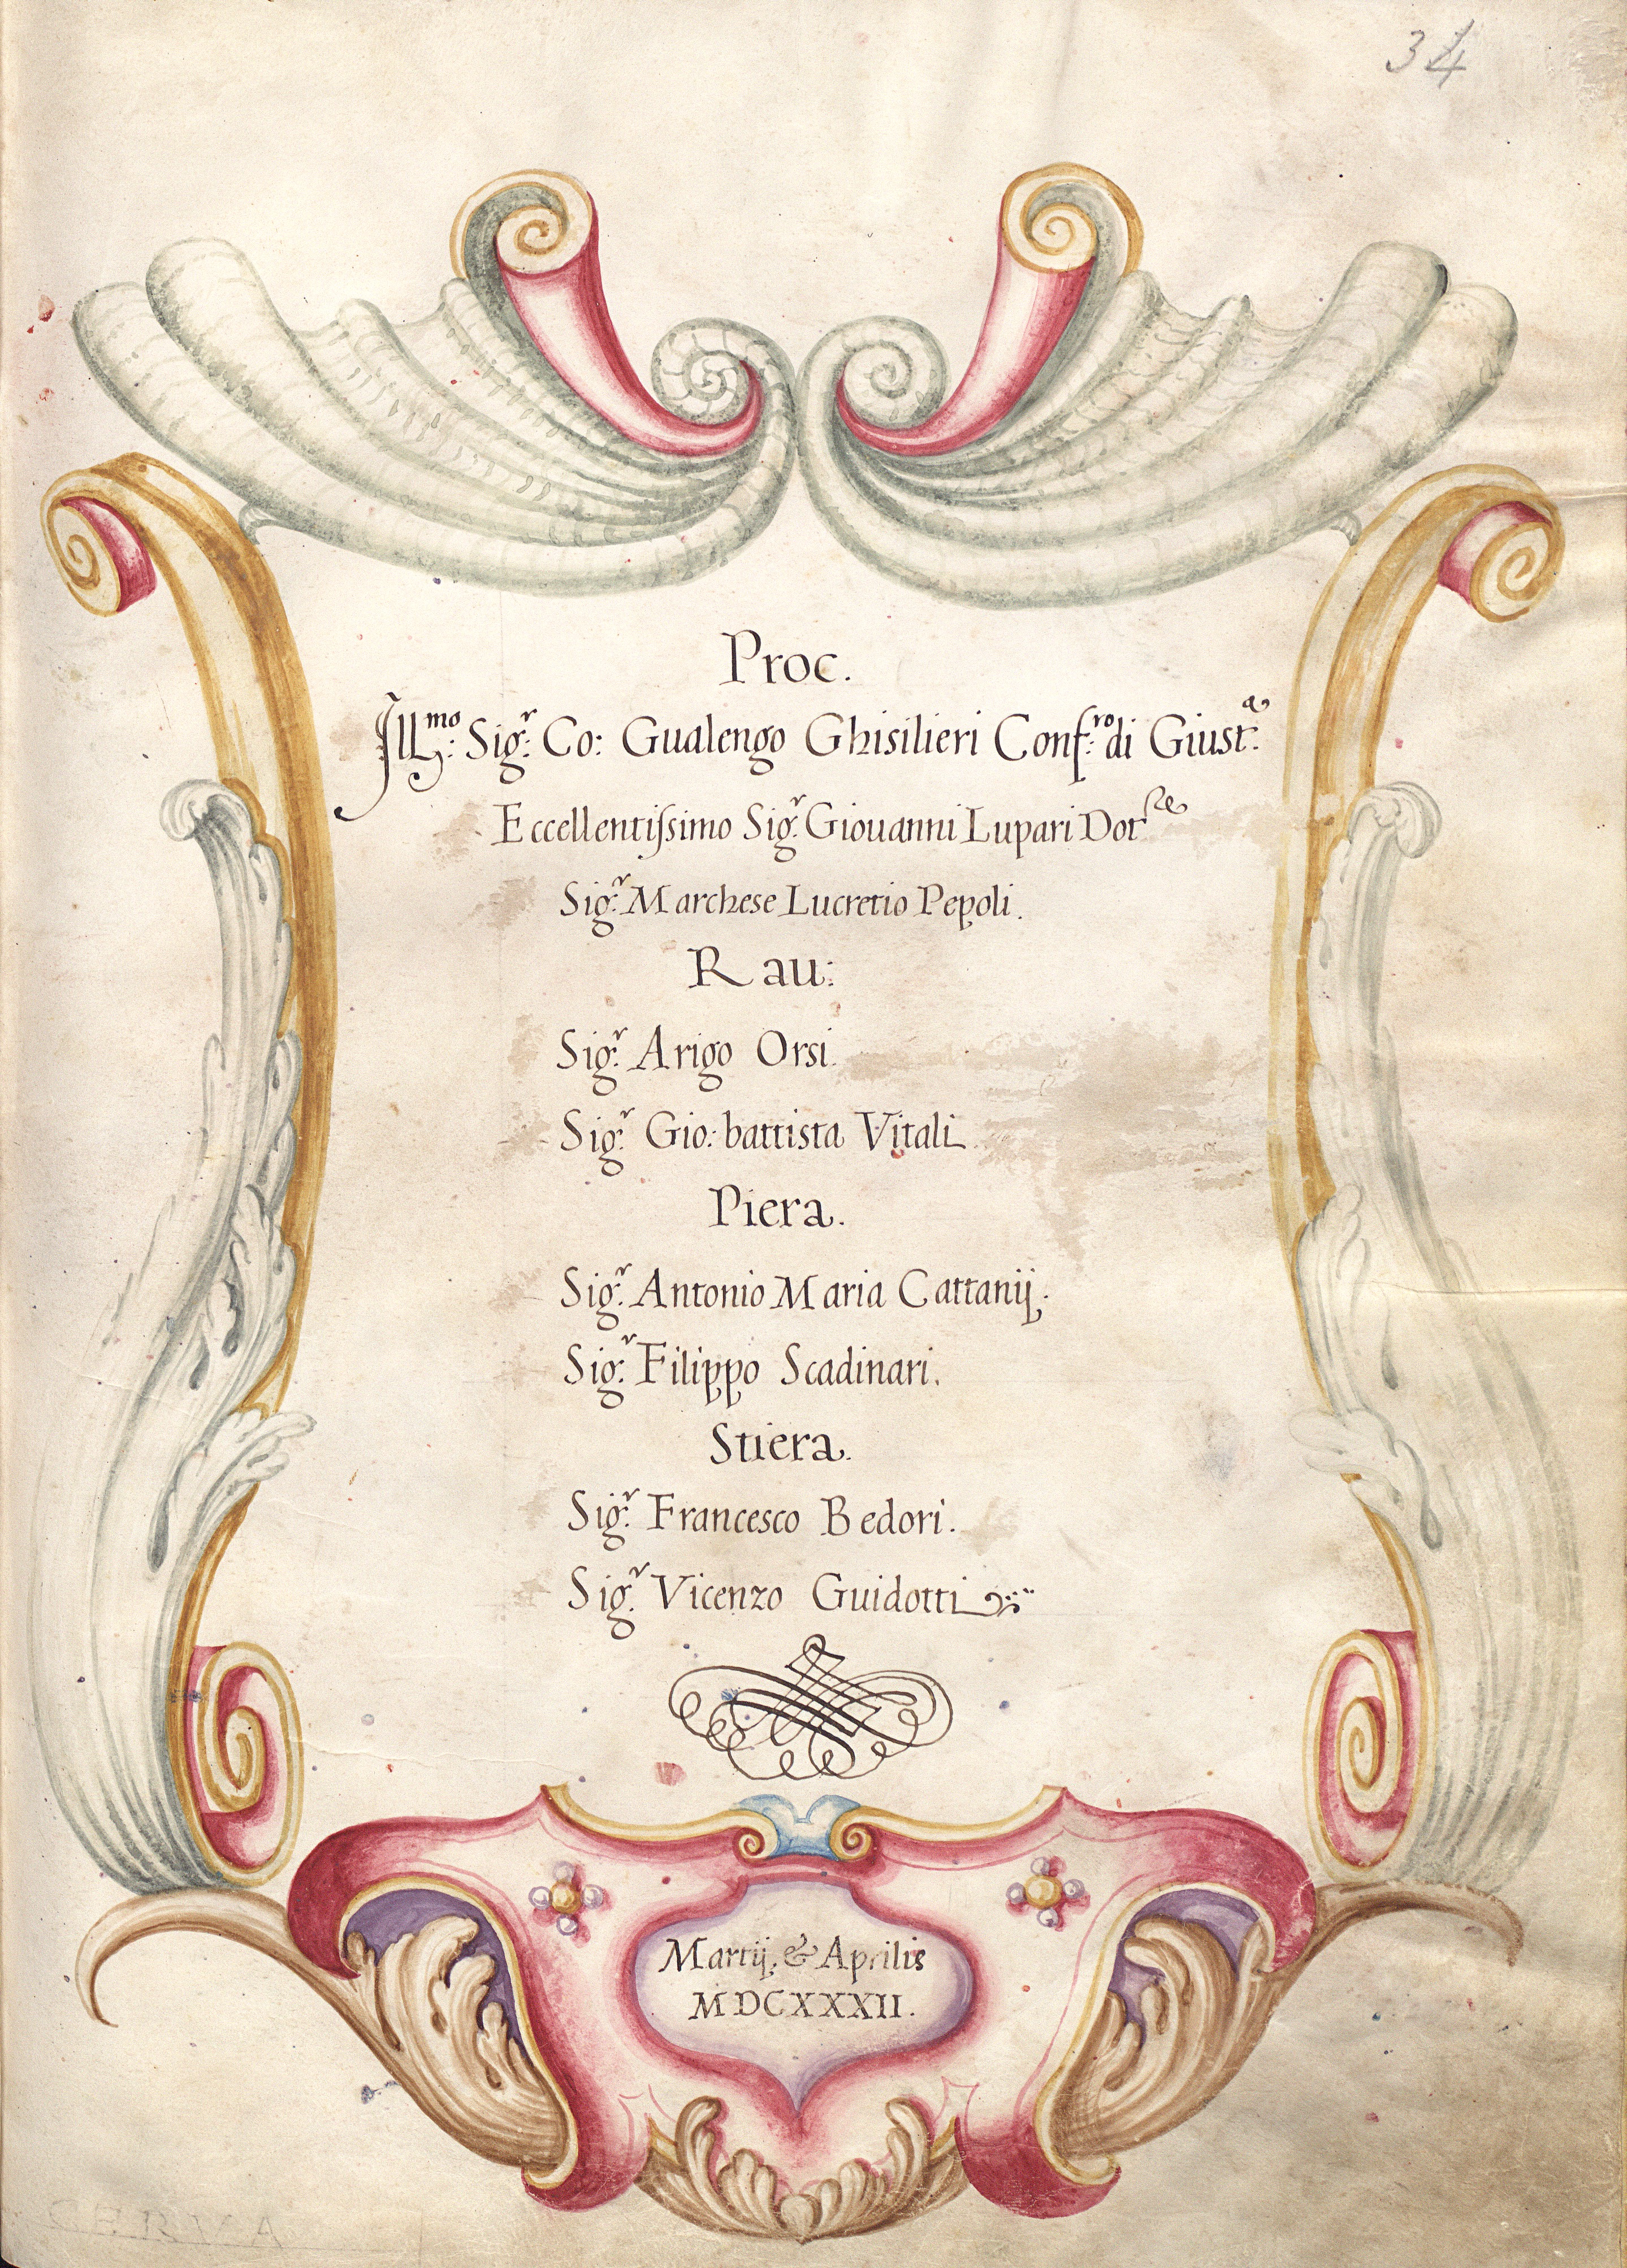 34
Proc.
Ill.mo Sig.r Co: Gualengo Ghisilieri Conf.ro di Giust.a
Eccellentiſsimo Sig.r Giouanni Lupari Dot.re
Sig.r Marchese Lucretio Pepoli.
Rau:
Sig.r Arigo Orsi.
Sig.r Gio: battista Vitali
Piera.
Sig.r Antonio Maria Cattanij.
Sig.r Filippo Scadinari.
Stiera.
Sig.r Francesco Bedori.
Sig.r Vicenzo Guidotti
Martij, & Aprilis
MDCXXXII.